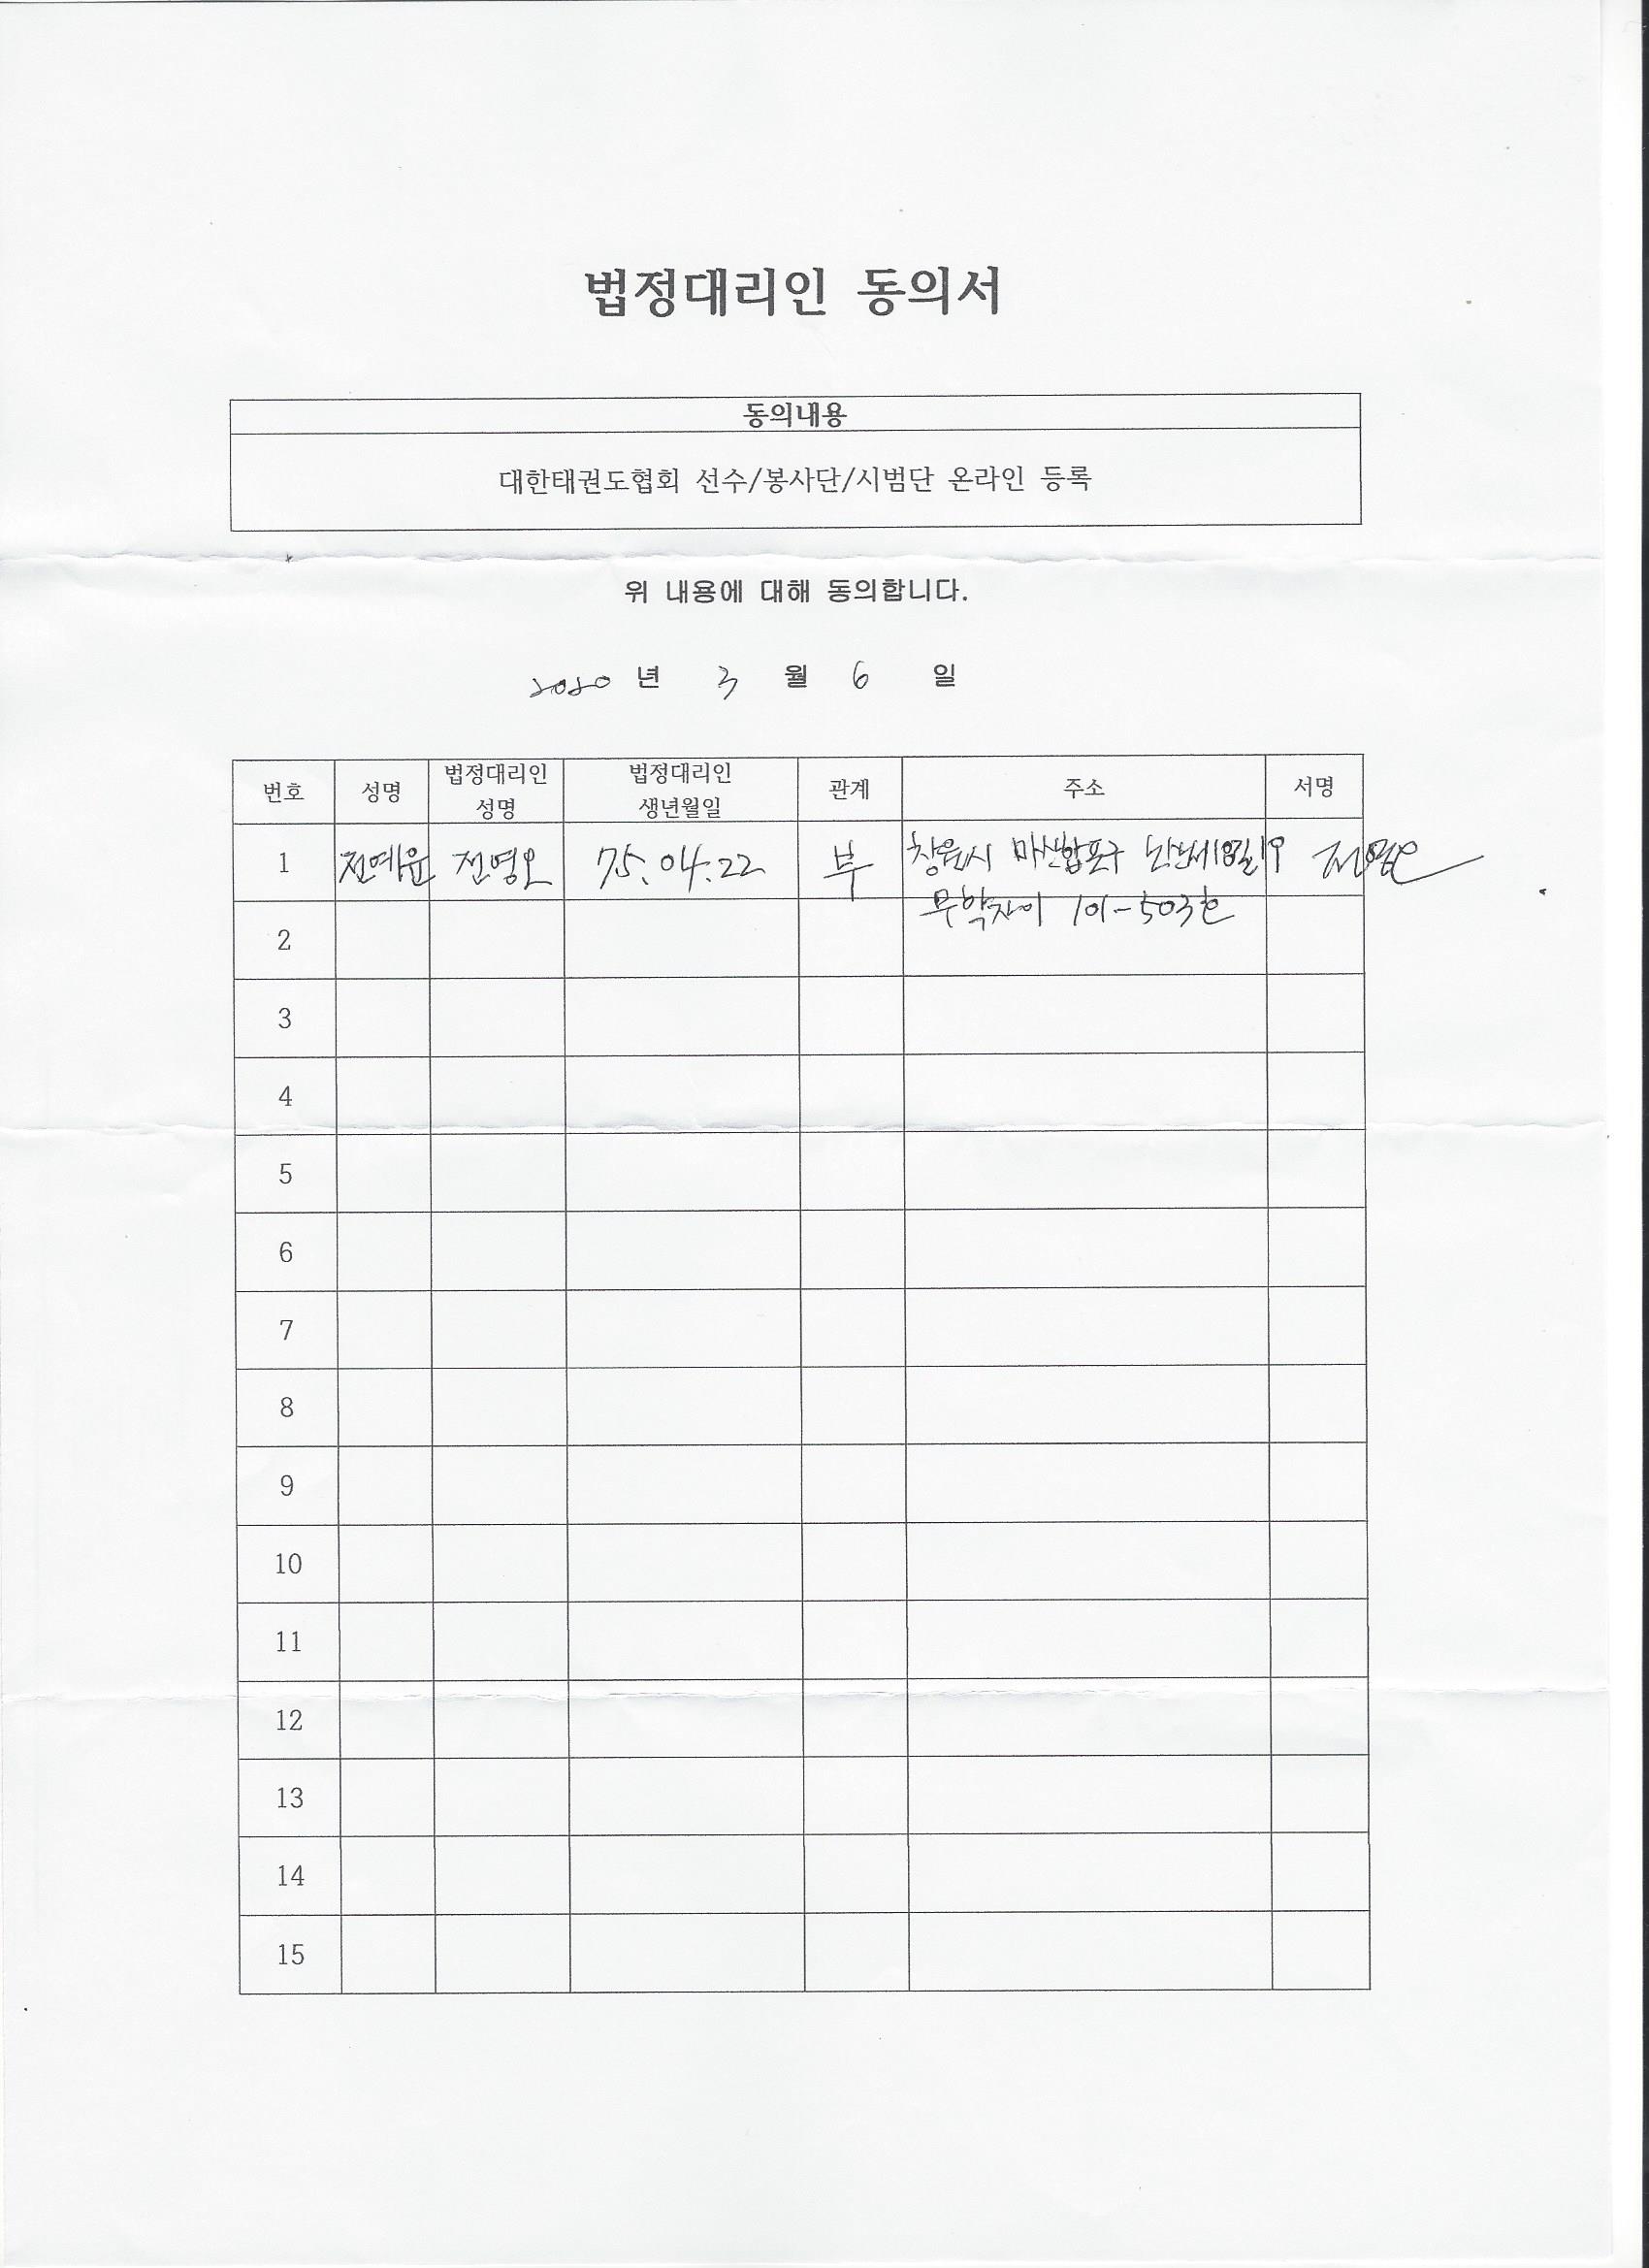 법정대리인 동의서
동의내용
대한태권도협회 선수/봉사단/시범단 온라인 등록
위 내용에 대해 동의합니다.
2020 년 3 월 6 일
번호 성명 법정대리인 성명 법정대리인 생년월일 관계 주소 서명
1 전예윤 전영오 75.04.22 부 창원시 마산합포구
무학자이 101-503호
2
3
4
5
6
7
8
9
10
11
12
13
14
15